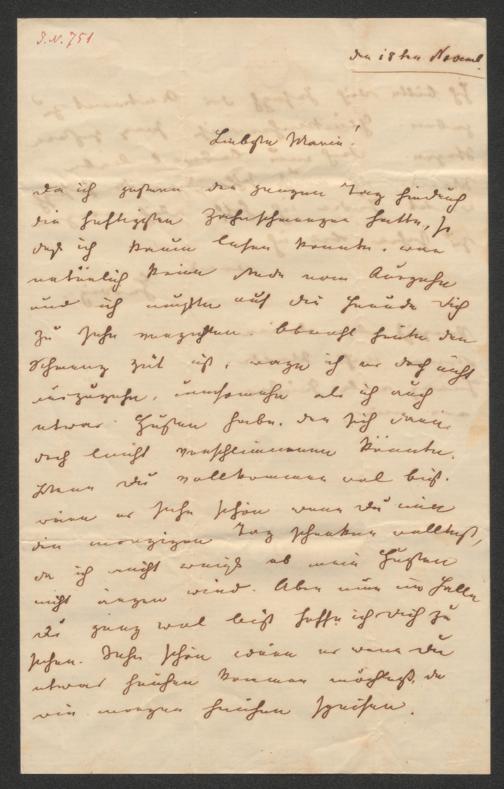 I.N. 751
den 18ten Novemb.
Liebste Marie!
Da ich gestern den ganzen Tag hindurch
die heftigsten Zahnschmerzen hatte, so
daß ich kaum lesen konnte, war
natürlich keine Rede vom Ausgehn
und ich mußte auf die Freude dich
zu sehn verzichten. Obwohl heute der
Schmerz gut ist, wage ich es doch nicht
auszugehn, umsomehr als ich auch
etwas Husten habe, der sich
doch leicht verschlimmern könnte.
Wenn du vollkommen wol bist,
wäre es sehr schön wenn du mir
den morgigen Tag schenken wolltest,
da ich nicht weiß ob mein Husten
nicht ärger wird. Aber nur im Falle
du ganz wol bist hoffe ich dich zu
sehen. Sehr schön wäre es wenn du
etwas früher kommen möchtest, da
wir morgen früher speisen.